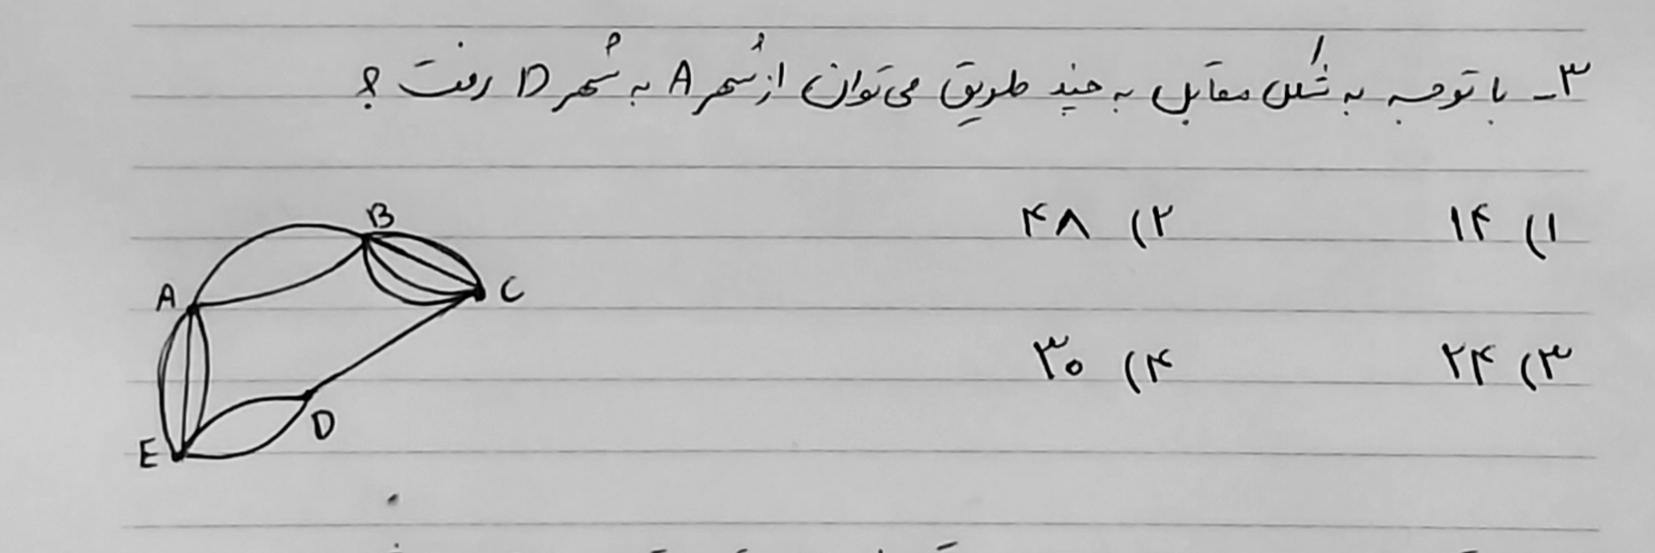 ۳- با توجه به شکل مقابل به چند طریق می‌توان از شهر A به شهر D رفت ؟
۱) ۱۴ ۲) ۴۸
۳) ۲۴ ۴) ۳۰
B
A C
D
E